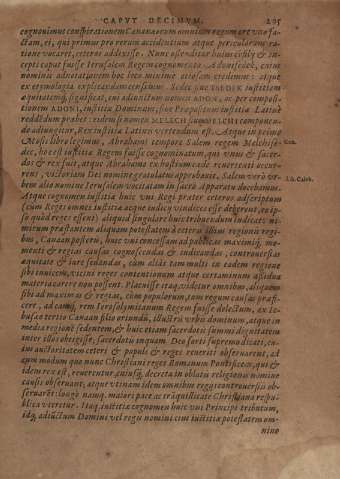 CAPVT DECIMVM. 205
cognouimus conspirationem Cananæorum omnium regum arte vire fa-
ctam, ei, qui primus pro rerum accidentium atque periculorum ra-
tione vocaret, ceteros addixisse. Nunc ostenditur huius consilij & in-
cepti caput fuisse Ierusalem Regem cognomento Adonisedek, cuius
nominis adnotationem hoc loco minime otiosam credimus: atque
ex etymologia explicandam censuimus. Sedec siue TSEDEK iustitiam
æquitatemq́; significat, cui adiunctum nomen ADON, ac per composi-
tionem ADONI, iustitiæ Dominus, siue Præpositum iustitiæ Latinè
reddendum probet: eidem si nomen MELECH siue MELCHI componen-
do adiungitur, Rex iustitiæ Latinis vertendum est. Atque in primo
Mosis libro legimus, Abrahami tempore Salem regem Melchise-
dec, hoc est iustitiæ Regem fuisse cognominatum, qui vnus & sacer-
dos & rex fuit, atque Abrahamo ex hostium cæde reuertenti occur-
rens, victoriam Dei nomine gratulatus approbauit. Salem verò vr-
bem alio nomine Ierusalem vocitatam in sacro Apparatu docebamus.
Atque cognomen iustitiæ huic vni Regi præter ceteros adscriptum
(cum Reges omnes iustitiæ atque iudicij vindices esse deberent, eo ip-
so quòd reges essent) aliquid singulare huic tribuendum indicat: ni-
mirum præstantem aliquam potestatem à ceteris illius regionis regi-
bus, Canaan posteris, huic vni concessam ad publicas maximiq́; mo-
menti & regias causas cognoscendas & iudicandas, controuersias
æquitate & iure sedandas, cum aliàs tam multi in eadem regione
sibi inuicem vicini reges contentionum atque certaminum assidua
materia carere non possent. Placuisse itaq; videtur omnibus, aliquem
sibi ad maximas & regias, cum popularium, tam regum causas præfi-
cere, ad eamq́; rem Ierosolymitanum Regem fuisse delectum, ex Ie-
busæo tertio Canaan filio oriundū, illustri vrbe dominum, atque in
media regione sedentem, & huic etiam sacerdotis summi dignitatem
inter illos obtigisse, sacerdotis inquam Deo sorti supremo dicati, cu-
ius auctoritatem ceteri & populi & reges venerati obseruarent, ad
eum modum quo nunc Christiani reges Romanum Pontificem, qui &
idem rex est, reuerentur, eiusq́; decreta in oblatis religionis nomine
causis obseruant, atque vtinam idem omnibus regijs controuersijs ob-
seruaret: longè namq; maiori pace ac trāquillitate Christiana respu-
blica vteretur. Itaq; iustitiæ cognomen huic vni Principi tributum,
idq́; adiūctum Domini vel regis nomini cum iustitiæ potestatem om-
nino
Gen.
Lib. Caleb.